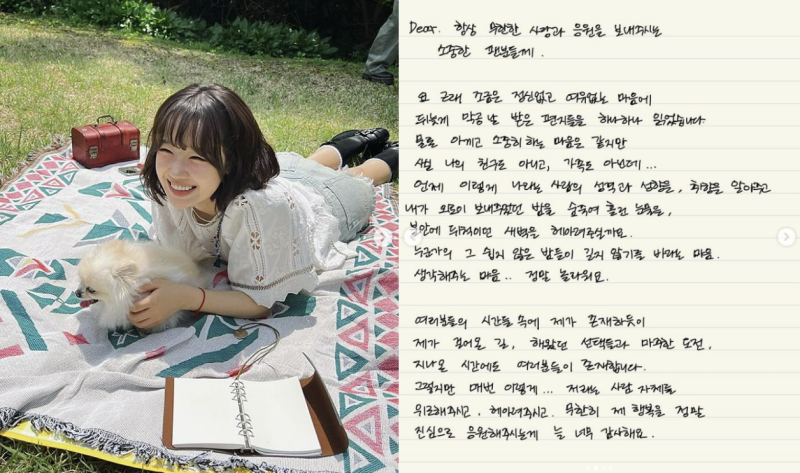 Dear. 항상 무한한 사랑과 응원을 보내주시는
소중한 팬분들께.
요 근래 조금은 정신없고 여유없는 마음에
뒤늦게 막공 날 받은 편지들을 하나하나 읽었습니다.
물론 아끼고 소중히 하는 마음은 같지만
사실 나의 친구도 아니고, 가족도 아닌데...
언제 이렇게 나라는 사람의 성격과 성향을, 취향을 알아주고
내가 외로이 보내주었던 밤을 숨죽여 흘린 눈물을,
불안에 뒤척이던 새벽을 헤아려주실까요.
누군가의 그 쉽지 않은 밤들이 길지 않기를 바라는 마음.
생각해주는 마음.. 정말 놀라워요.
여러분들의 시간들 속에 제가 존재하듯이
제가 걸어온 길, 해왔던 선택들과 마주한 도전,
지나온 시간에도 여러분들이 존재합니다.
그렇지만 매번 이렇게... 저라는 사람 자체를
위로해주시고, 헤아려주시고. 무한히 제 행복을 정말
진심으로 응원해주시는게 늘 너무 감사해요.